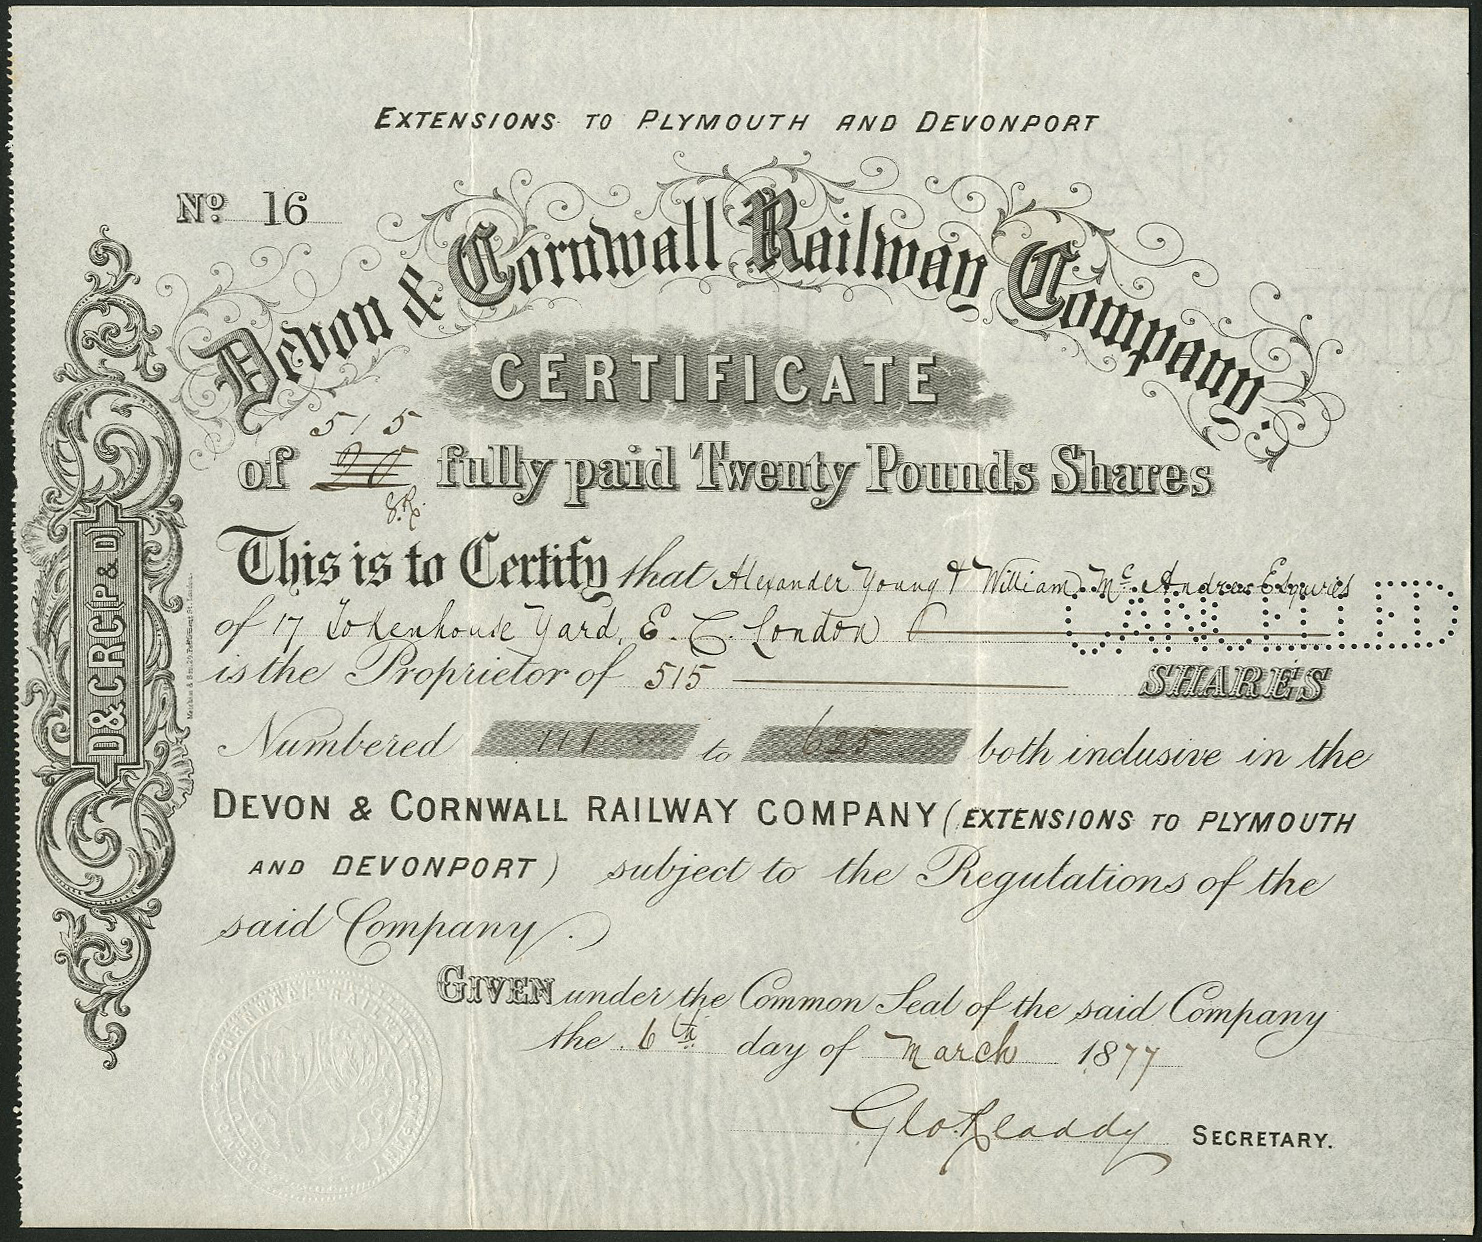 EXTENSIONS TO PLYMOUTH AND DEVONPORT
No. 16
Devon & Cornwall Railway Company.
CERTIFICATE
515
of 20 fully paid Twenty Pounds Shares
This is to Certify that Alexander Young & William Mc Andrew Esquires
CANCELLED
of 17 Tokenhouse Yard, E. C. London
is the Proprietor of 515 SHARES
Numbered 111 to 625 both inclusive in the
DEVON & CORNWALL RAILWAY COMPANY (EXTENSIONS TO PLYMOUTH
AND DEVONPORT) subject to the Regulations of the
said Company.
GIVEN under the Common Seal of the said Company
the 6th day of March 1877
SECRETARY.
D & C R C (P & D)